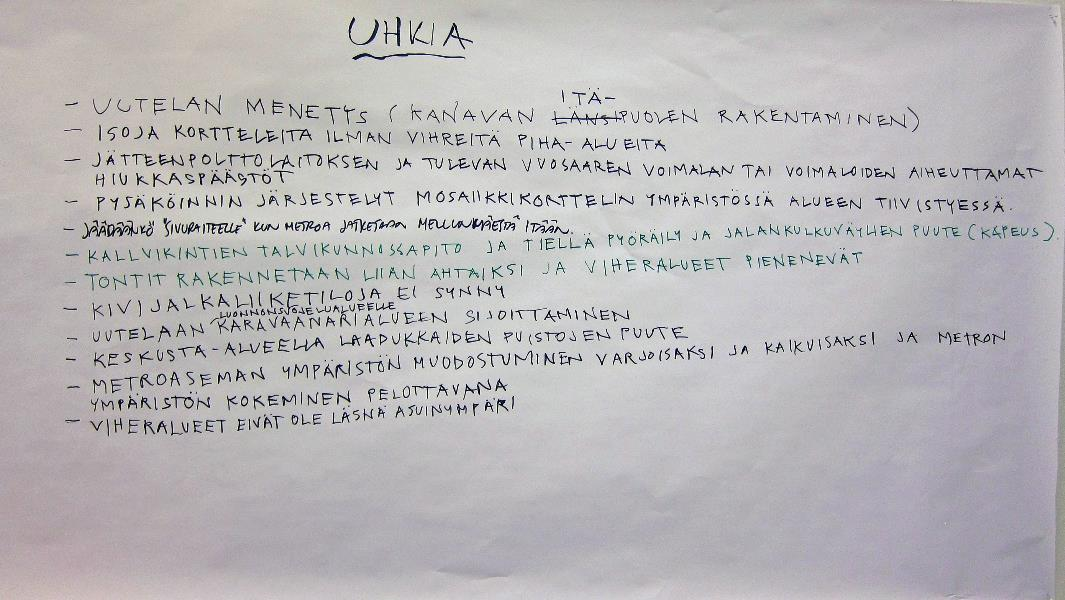 UHKIA
- UUTELAN MENETYS (KANAVAN LÄNSI ITÄ-PUOLEN RAKENTAMINEN)
- ISOJA KORTTELEITA ILMAN VIHREITÄ PIHA-ALUEITA
- JÄTTEENPOLTTOLAITOKSEN JA TULEVAN VUOSAAREN VOIMALAN TAI VOIMALOIDEN AIHEUTTAMAT
HIUKKASPÄÄSTÖT
- PYSÄKÖINNIN JÄRJESTELYT MOSAIIKKIKORTTELIN YMPÄRISTÖSSÄ ALUEEN TIIVISTYESSÄ.
- JÄÄDÄÄNKÖ "SIVURAITEELLE" KUN METROA JATKETAAN MELLUNMÄESTÄ ITÄÄN.
- KALLVIKINTIEN TALVIKUNNOSSAPITO JA TIELLÄ PYÖRÄILY JA JALANKULKUVÄYLIEN PUUTE (KAPEUS).
- TONTIT RAKENNETAAN LIIAN AHTAIKSI JA VIHERALUEET PIENENEVÄT
- KIVIJALKALIIKETILOJA EI SYNNY
- UUTELAAN LUONNONSUOJELUALUEELLE KARAVAANARIALUEEN SIJOITTAMINEN
- KESKUSTA-ALUEELLA LAADUKKAIDEN PUISTOJEN PUUTE
- METROASEMAN YMPÄRISTÖN MUODOSTUMINEN VARJOISAKSI JA KAIKUISAKSI JA METRON
YMPÄRISTÖN KOKEMINEN PELOTTAVANA
- VIHERALUEET EIVÄT OLE LÄSNÄ ASUINYMPÄRI